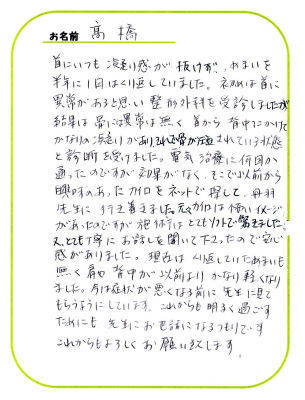 お名前 高橋
首にいつも凝り感が抜けず、めまいを
半年に1回はくり返していました。初めは首に
異常があると思い整形外科を受診しましたが
結果は骨には異常は無く首から背中にかけて
かなりの凝りがありそれで骨が圧迫されている状態
と診断を受けました。電気治療に何回か
通ったのですが効果がなく、そこで以前から
興味のあったカイロをネットで探して、丹羽
先生に行き着きました。カイロは怖いイメージ
があったのですが施術はとてもソフトで驚きました。
又、とても丁寧にお話しを聞いて下さったので安心
感がありました。現在はくり返していためまいも
無く肩や背中が以前よりかなり軽くなり
ました。今は症状が悪くなる前に先生に見て
もらうようにしています。これからも明るく過ごす
ためにも先生にお世話になるつもりです
これからもよろしくお願い致します